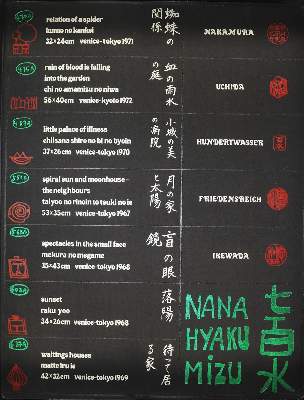 relation of a spider
kumo no kankei
32×24cm venice-tokyo 1971
蜘蛛の
関係
NAKAMURA
rain of blood is falling
into the garden
chi no amamizu no niwa
56×40cm venice-kyoto 1972
血の雨水
の庭
UCHIDA
little palace of illness
chiisana shiro no bi no byoin
37×26cm venice-tokyo 1970
小城の美
の病院
HUNDERTWASSER
spiral sun and moonhouse –
the neighbours
taiyoo no rinoln to tsuki no ie
53×35cm venice-tokyo 1967
月の家
と太陽
FRIEDENSREICH
spectacles in the small face
mekura no megame
35×43cm venice-tokyo 1968
盲の眼
鏡
IKEWADA
sunset
raku yoo
34×26cm venice-tokyo 1968
落陽
waitings houses
matte iru ie
42×32cm venice-tokyo 1969
待って居
る家
NANA
HYAKU
MIZU
七百水